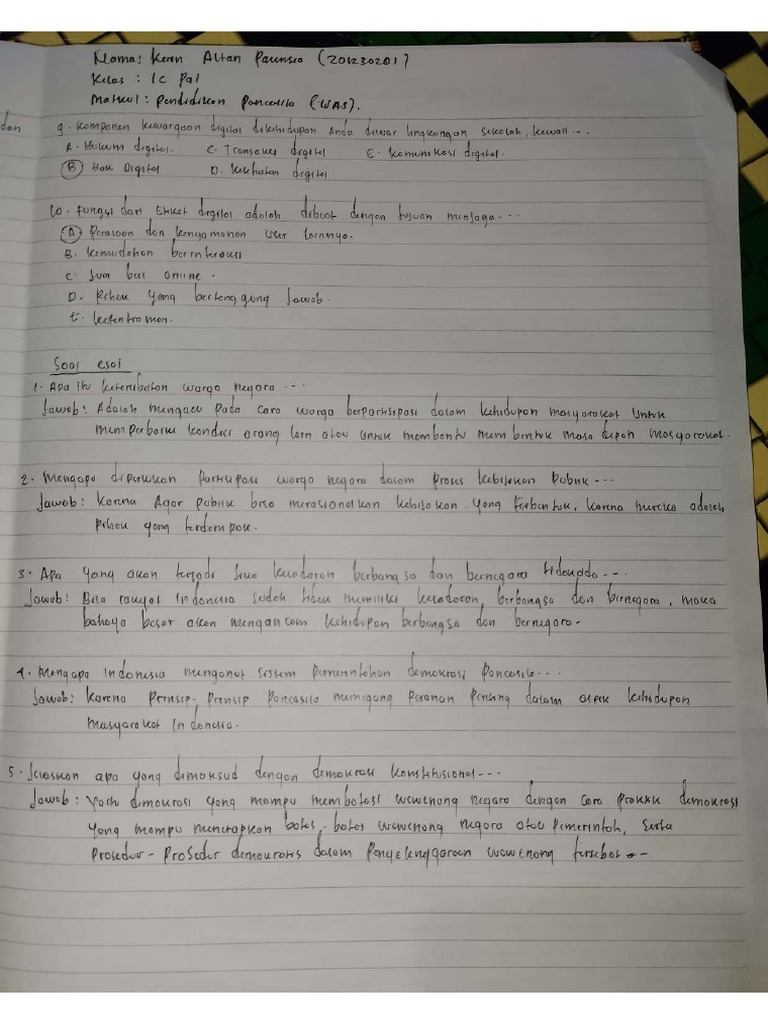 dan
Nama: Kerin Altan Parensra (201230201)
Kelas : 1C Pai
Matkul : Pendidikan Pancasila (UAS).
9. Komponen kewargaan digital dikehidupan Anda diluar lingkungan sekolah, kecuali....
A. Hukum digital. C. Transaksi digital E. Komunikasi digital.
B Hak Digital D. Kesehatan digital
10. Fungsi dari Etiket digital adalah dibuat dengan tujuan menjaga....
A Perasaan dan kenyamanan user lainnya.
B. Kemudahan berinteraksi
C. Jual beli online.
D. Pihak yang bertanggung jawab.
E. Ketentraman.
Soal esai
1. Apa itu keterlibatan warga negara ...
Jawab: Adalah mengacu pada cara warga berpartisipasi dalam kehidupan masyarakat untuk
memperbaiki kondisi orang lain atau untuk membantu membentuk masa depan masyarakat.
2. Mengapa diperlukan partisipasi warga negara dalam proses kebijakan publik ...
Jawab: Karena Agar publik bisa merasionalkan kebijakan yang terbentuk, karena mereka adalah
pihak yang terdampak.
3. Apa yang akan terjadi jika kesadaran berbangsa dan bernegara tidak ada ...
Jawab: Bila rakyat Indonesia sudah tidak memiliki kesadaran, berbangsa dan bernegara, maka
bahaya besar akan mengancam kehidupan berbangsa dan bernegara.
4. Mengapa Indonesia menganut sistem pemerintahan demokrasi Pancasila ...
Jawab: Karena Prinsip-Prinsip Pancasila memegang peranan penting dalam aspek kehidupan
masyarakat Indonesia.
5. Jelaskan apa yang dimaksud dengan demokrasi konstitusional ...
Jawab: Yaitu demokrasi yang mampu membatasi wewenang negara dengan cara praktik demokrasi
yang mampu menetapkan batas-batas wewenang negara atau pemerintah, serta
prosedur-prosedur demokratis dalam penyelenggaraan wewenang tersebut.